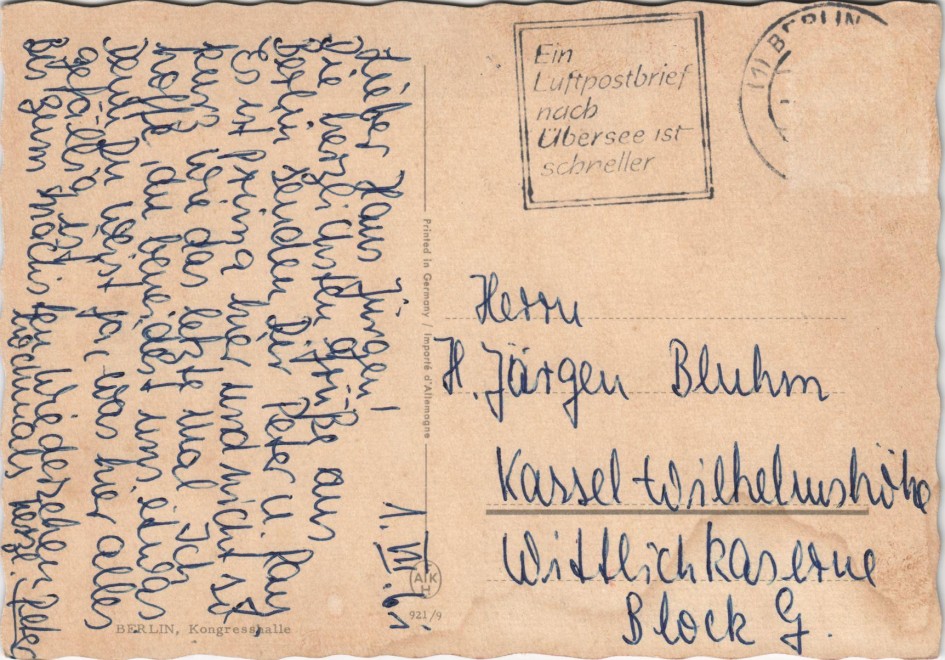 Ein
Luftpostbrief
nach
Übersee ist
schneller
(1) BERLIN
1. VII.
Lieber Hans Jürgen!
Die herzlichsten Grüße aus
Berlin senden Dir Peter u.
Es ist prima hier und nicht so
wie das letzte Mal. Ich
hoffe, du beneidest uns etwas
denn Du weißt ja, was hier alles
gefällig ist.
Bis zum nächsten Wiedersehen
nochmals herzl. Peter
Printed in Germany / Importé d'Allemagne
AKH
921/9
BERLIN, Kongresshalle
Herrn
H. Jürgen Bluhm
Kassel-Wilhelmshöhe
Wittichkaserne
Block G.